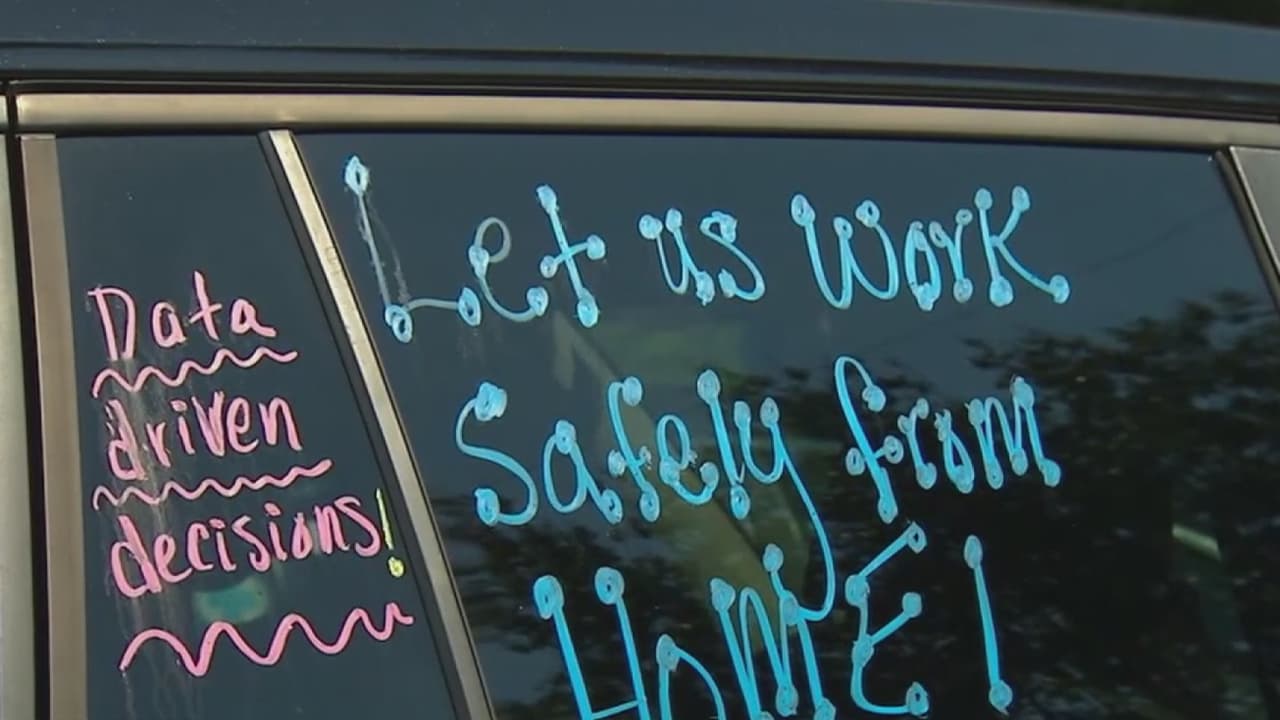 Data
driven
decisions!
Let us work
Safely from
HoME!